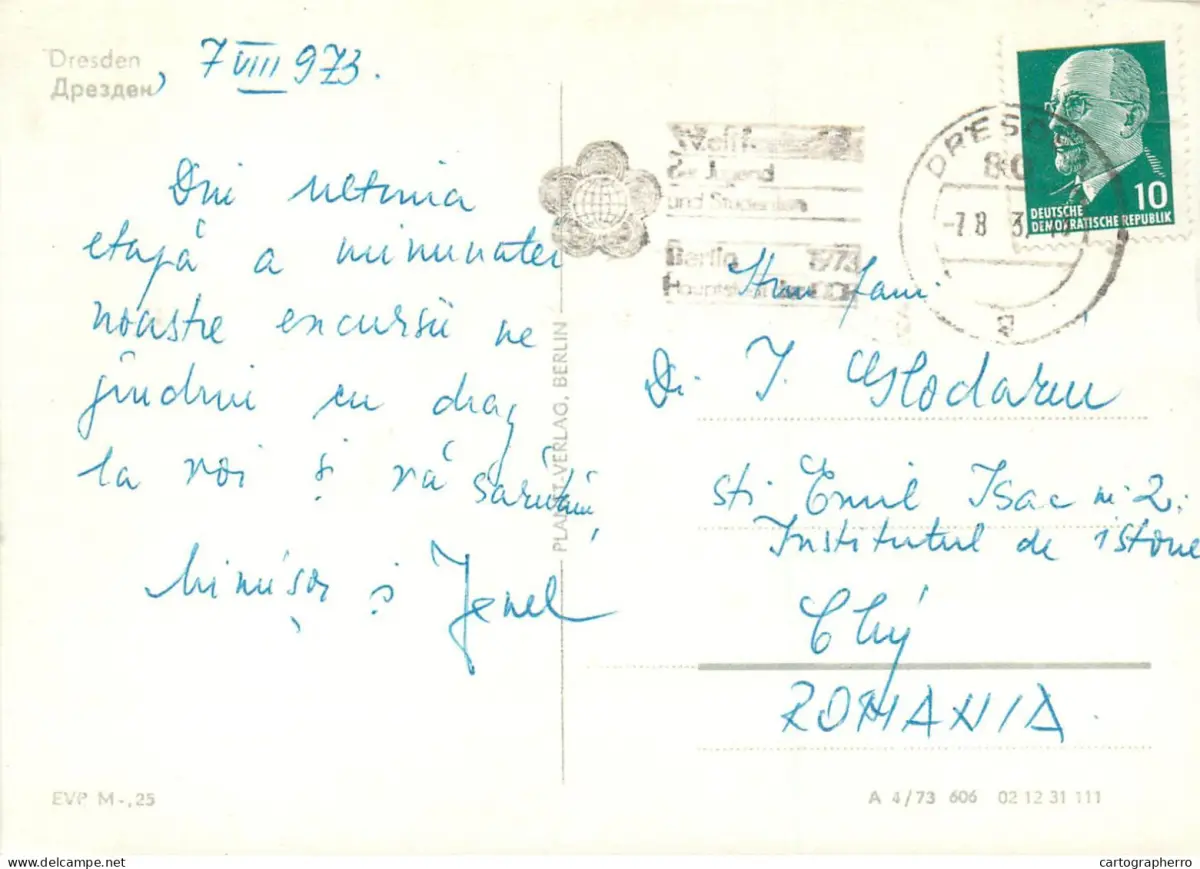 Dresden
Дрезден, 7 VIII 973.
Din ultima
etapă a minunatei
noastre excursii ne
gîndim cu drag
la voi și vă sărutăm,
și Jenel
PLANET-VERLAG, BERLIN
Welt
der Jugend
und Studenten
Berlin 1973
DRESD
80
-7.8
DEUTSCHE
DEMOKRATISCHE REPUBLIK
10
Fam.
I. Glodariu
Emil Isac 2.
Institutul de istorie
Cluj
ROMANIA.
EVP M -,25
A 4/73 606 02 12 31 111
www.delcampe.net
cartographerro